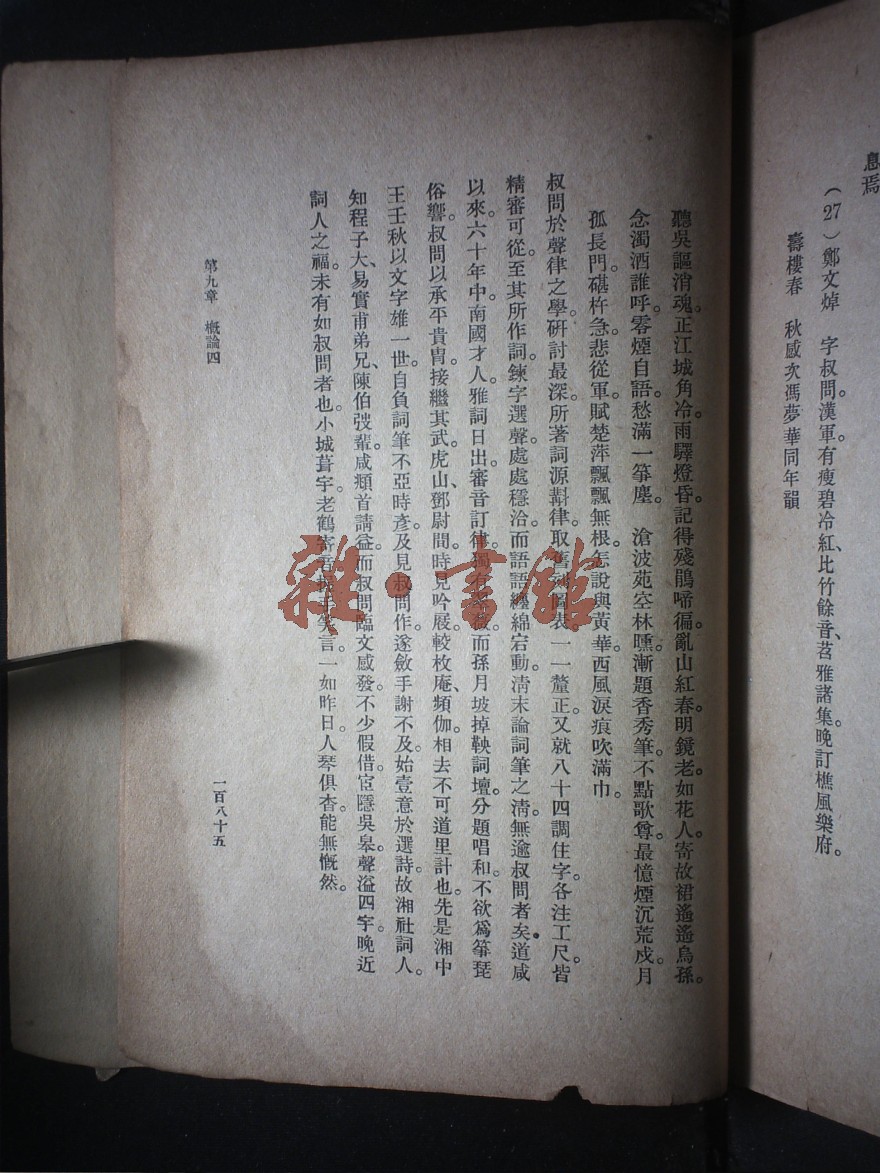 息焉
（27）鄭文焯　字叔問。漢軍。有瘦碧冷紅、比竹餘音、苕雅諸集。晚訂樵風樂府。
壽樓春　秋感次馮夢華同年韻
聽吳謳消魂。正江城角冷。雨驛燈昏。記得殘鵑啼徧。亂山紅春。明鏡老。如花人。寄故裙遙遙烏孫。
念濁酒誰呼。零煙自語。愁滿一箏塵。　滄波苑。空林曛。漸題香秀筆。不點歌尊。最憶煙沉荒戍。月
孤長門。碪杵急。悲從軍。賦楚萍飄飄無根。怎說與黃華。西風淚痕吹滿巾。
叔問於聲律之學。研討最深。所著詞源斠律。取舊刻圖表。一一釐正。又就八十四調住字。各注工尺。皆
精審可從。至其所作詞。鍊字選聲。處處穩洽。而語語纏綿宕動。清末論詞筆之清。無逾叔問者矣。道咸
以來。六十年中。南國才人。雅詞日出。審音訂律。獨有翠薇。而孫月坡掉鞅詞壇。分題唱和。不欲爲箏琵
俗響。叔問以承平貴胄。接繼其武。虎山、鄧尉間。時見吟展。較枚庵、頻伽。相去不可道里計也。先是湘中
王壬秋以文字雄一世。自負詞筆不亞時彥。及見叔問作。遂斂手謝不及。始壹意於選詩。故湘社詞人。
知程子大、易實甫弟兄、陳伯弢輩。咸頫首請益。而叔問臨文感發。不少假借。宦隱吳皋。聲溢四宇。晚近
詞人之福。未有如叔問者也。小城葺宇。老鶴寄音。握手笑言。一如昨日。人琴俱杳。能無慨然。
第九章　概論四
一百八十五
雜·書館